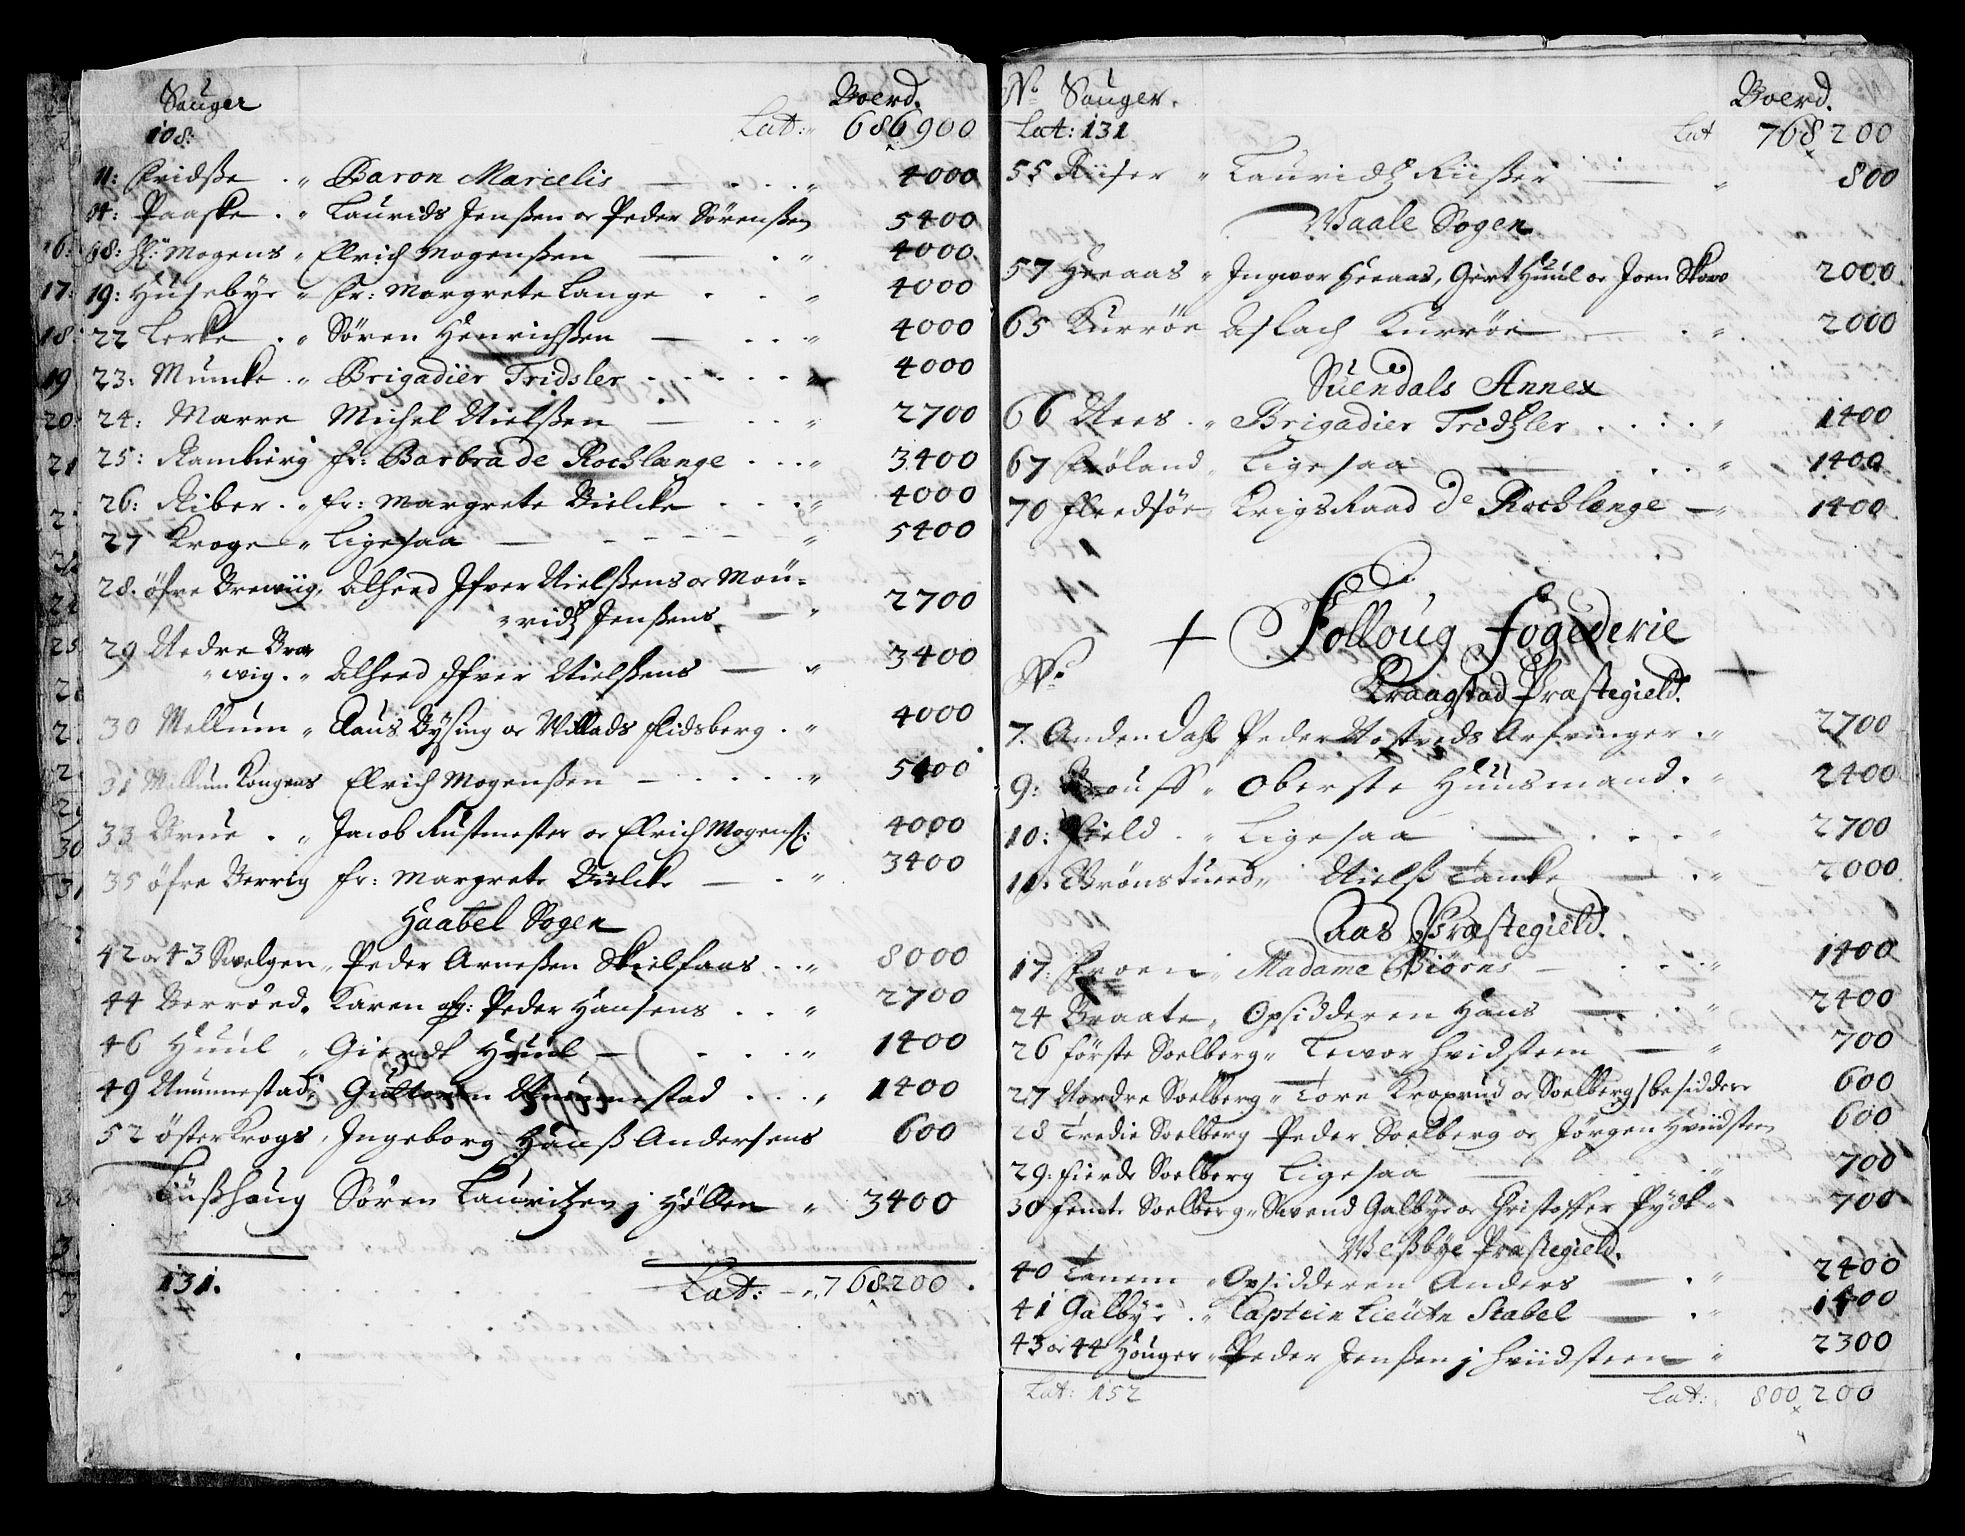 Sauger Boerd.
108: Lat: 686900
11: Fridsße Baron Marcelis 4000
Paaske Laurids Jenßen or Peder Sörenßen 5400
18: Hr: Mogens Elrich Mogenßen 4000
19: Husebye Fr: Margrete Lange 4000
22 Lerke Sören Henrichßen 4000
23: Muncke Brigadier Tridsler 4000
24: Marre Michel Nielßen 2700
25: Ramberig fr: Barbra de Rochlange 3400
26: Riber fr: Margrete Bielcke 4000
27 Kroge Ligesaa 5400
28. öfre Brewiig Alheed Jfver Nielßens or Mou-
ridz Jenßens 2700
29 Nedre Bre
wig Alheed Jfver Nielßens 3400
30 Mellum Claus Bysing or Willads Flidsberg 4000
31 Mellum Kongens Elrich Mogenßen 5400
33 Brue Jacob Rustmester or Elrich Mogenß: 4000
35 öfre Berrig fr: Margrete Bielcke 3400
Haabel Sogen
42 or 43 Swelgen Peder Arneßen Skielfaas 8000
44 Berröed Karen Peder Hansens 2700
46 Huul Gierdt Huul 1400
49 Unumnestad Guttorm Unumnestad 1400
52 öster Krogs Jngeborg Hanß Andersens 600
Lüßhaug Sören Lauritzen j Höllen 3400
131. Lat: 768200
No Sauger. Boerd.
Lat: 131 Lat 768200
55 Riiser Lauridz Riißer 800
Waale Sogen
57 Heraas Jngwor Heraas, Giert Huul or Joen Skow 2000
65 Kurröe Aslach Kurröe 2000
Suendals Annex
66 Nees Brigadier Tridzler 1400
67 Fröland Ligesaa 1400
70 Fleedsöe Krigs Raad De Rochlange 1400
+ Folloug Fogederie
No Kraagstad Præstegield.
7. Anden Dahl Peder Arfvinger 2700
9: Oberste Huusmand 2400
10: Field Ligesaa 2700
11. Brönstued Nielß Tancke 2000
Aas Præstegield.
17: Froen Madame Biörns 1400
24 Braate Opsidderen Hans 2400
26 förste Soelberg Tewor Hvidsteen 700
27 Nordre Soelberg Tore Kroprud or Soelbergs besiddere 600
28 Tredie Soelberg Peder Soelberg or Jörgen Hviidsteen 600
29: Fierde Soelberg Ligesaa 700
30 Femte Soelberg Swend Galbye or Christopher Pydt 700
Weßbye Præstegield.
40 Tanem Opsidderen Anders 2400
41 Galbye Captein Lieutn Stabel 1400
43 or 44 Houger Peder Jenßen j Hviidsteen 2300
Lat: 152 Lat: 800,200